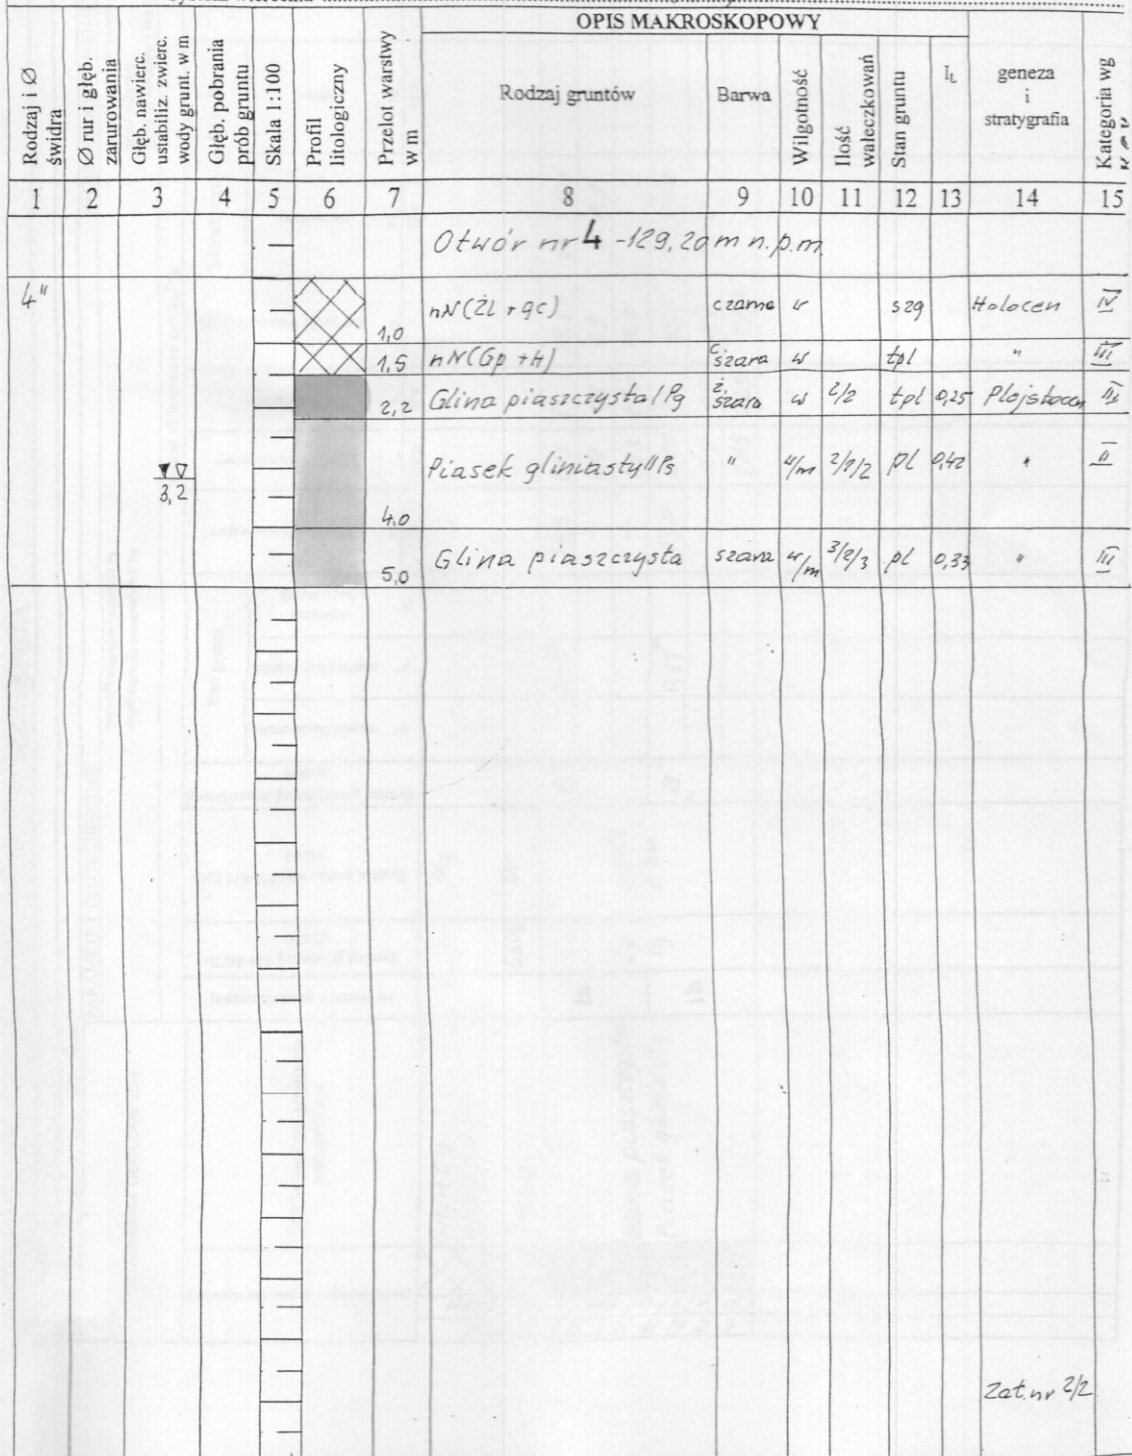 OPIS MAKROSKOPOWY
Rodzaj i Ø świdra
Ø rur i głęb. zarurowania
Głęb. nawierc. ustabiliz. zwierc. wody grunt. w m
Głęb. pobrania prób gruntu
Skala 1:100
Profil litologiczny
Przelot warstwy w m
Rodzaj gruntów
Barwa
Wilgotność
Ilość wałeczkowań
Stan gruntu
IL
geneza i stratygrafia
Kategoria wg
1 2 3 4 5 6 7 8 9 10 11 12 13 14 15
Otwór nr 4 -129,20 m n.p.m.
4" 1,0 nN(Żl + gc) czarne w szg Holocen IV
1,5 nN(Gp + H) c. szara w tpl " III
2,2 Glina piaszczysta/Pg ż. szara w 2/2 tpl 0,25 Plejstocen III
3,2 4,0 Piasek gliniasty//Ps " w/m 2/2/2 pl 0,42 " II
5,0 Glina piaszczysta szara w/m 3/2/3 pl 0,33 " III
Zał. nr 2/2